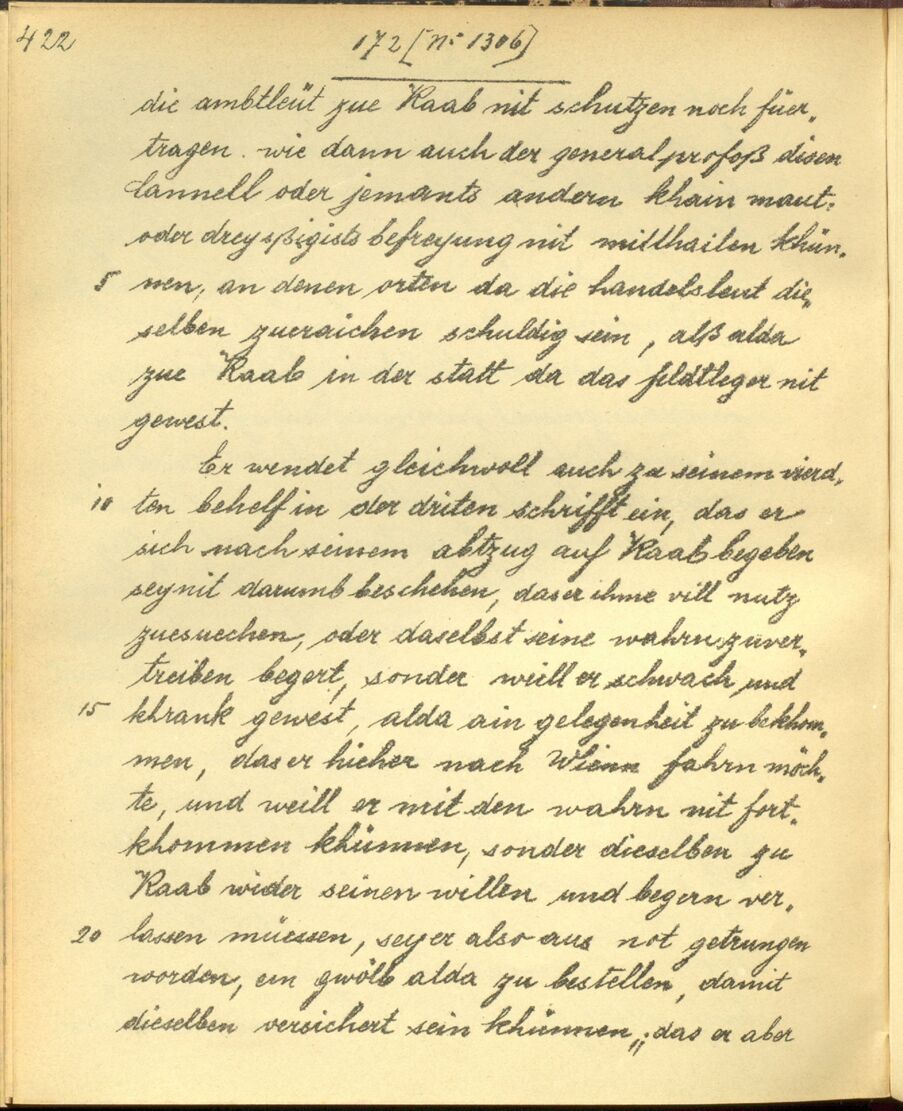 422
172 [No 1306]
die ambtleüt zue Raab nit schutzen noch füer„
tragen. wie dann auch der general profoß disen
Cannell oder jemants andern khain maut:
oder dreyßsigists befreyung nit mitthailen khün„
5 nen, an denen orten da die handelsleut die„
selben zueraichen schuldig sein, alß alda
zue Raab in der statt da das feldtleger nit
gewest.
Er wendet gleichwoll auch zu seinem vierd„
10 ten behelf in der driten schrifft ein, das er
sich nach seinem abtzug auf Raab begeben
sey nit darumb beschehen, das er ihme vill nutz
zuesuechen, oder daselbst seine wahrn zuver„
treiben begert, sonder weill er schwach und
15 khrank gewest, alda ain gelegenheit zu bekhom„
men, das er hieher nach Wienn fahrn möch„
te, und weill er mit den wahrn nit fort„
khommen khünnen, sonder dieselben zu
Raab wider seinen willen und begern ver„
20 lassen müessen, sey er also aus not getrungen
worden, ein gwölb alda zu bestellen, damit
dieselben versichert sein khünnen„; das er aber